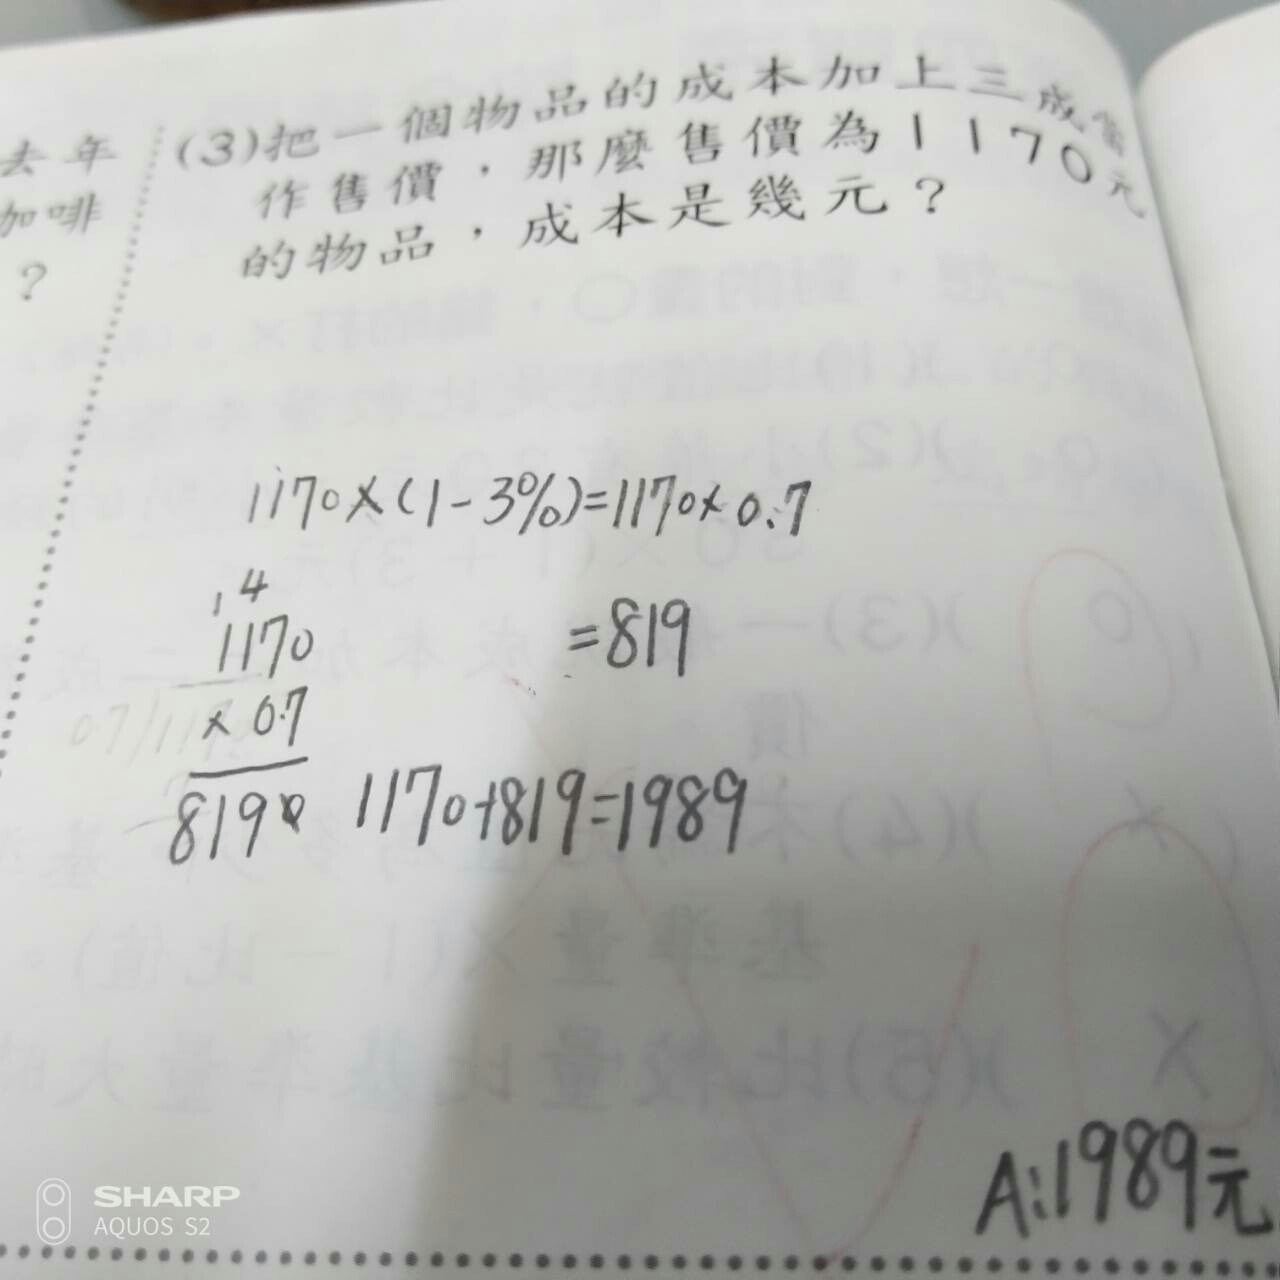 去年
咖啡
?
(3)把一個物品的成本加上三成當
作售價,那麼售價為1170元
的物品,成本是幾元?
1170×(1-3%)=1170×0.7
=819
1 4
1170
× 0.7
819
1170+819=1989
A:1989元
SHARP
AQUOS S2